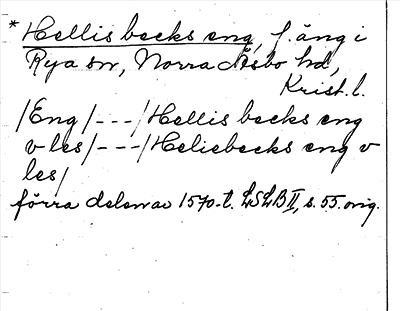 * Hellis becks eng, f. äng i
Rya sn, Norra Åsbo hd,
Krist. l.
/Eng/---/Hellis becks eng
v les/---/Heliebecks eng v
les/
förra delen av 1570-t. LSLB II, s. 55. orig.